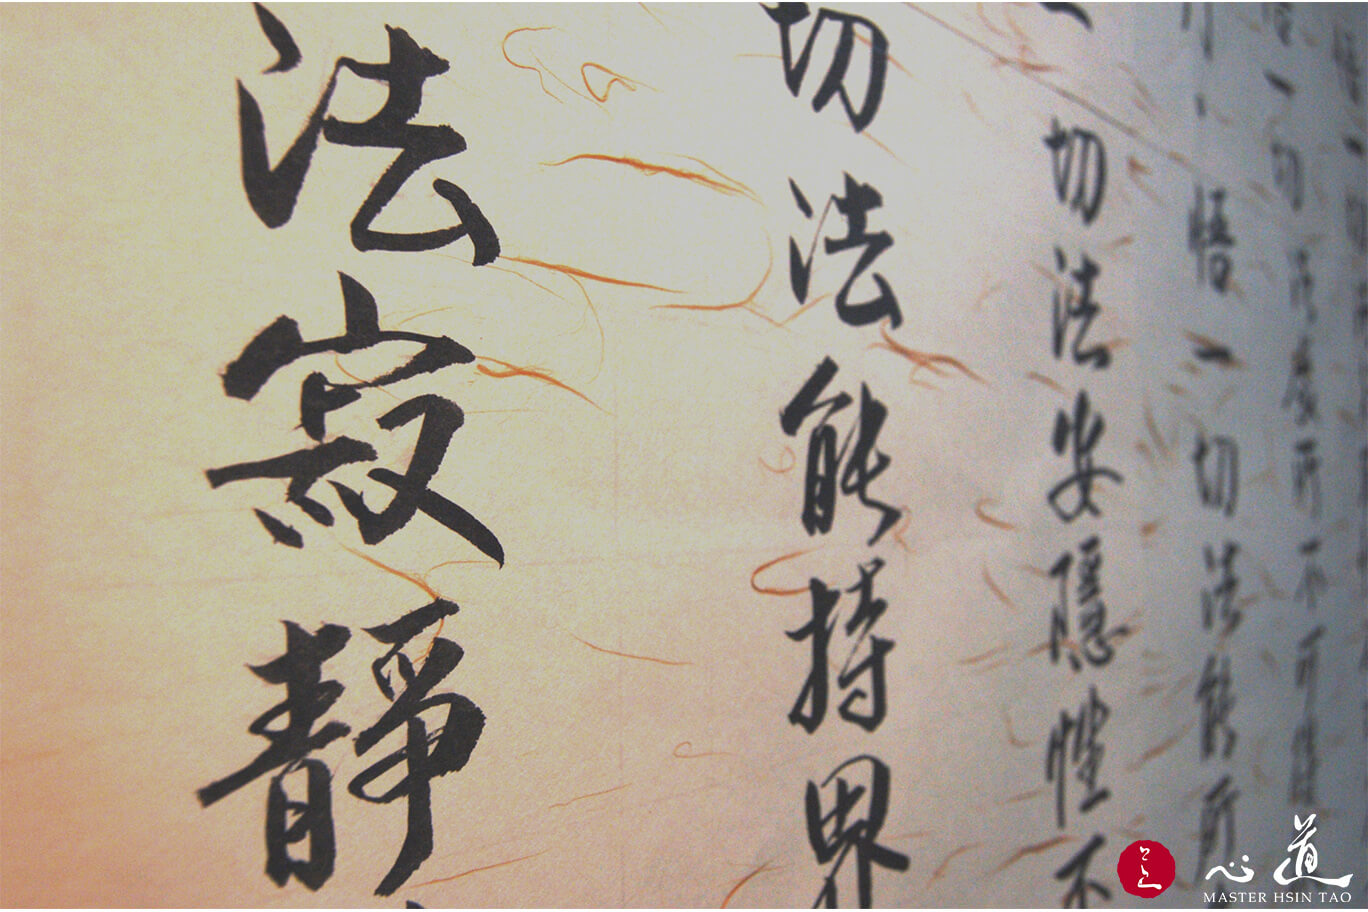 一切法
所不可得
悟一切法能所
一切法安隱性不
切法能持界
法寂靜
心道
MASTER HSIN TAO